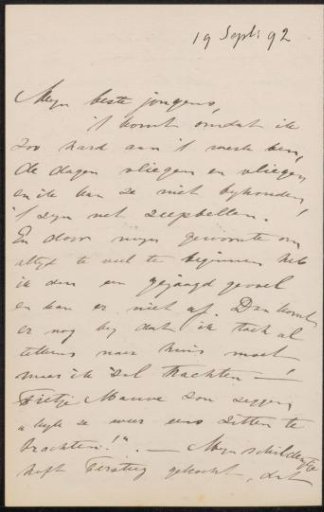 19 Sept. 92
Mijn beste jongens,
't komt omdat ik
zoo hard aan 't werk ben,
de dagen vliegen en vliegen
en ik kan ze niet byhouden,
't zyn net zeepbellen.
En door mijn gewoonte om
altyd te veel te beginnen heb
ik dan een gejaagd gevoel
en kan er niet af. Dan komt
er nog by dat ik toch al
telkens naar huis moet
maar ik zal trachten —
Fietje Mauve zou zeggen,
ze weer eens zitten te
trachten!". — Mijn schildery
heft Tersteeg gekocht, dat